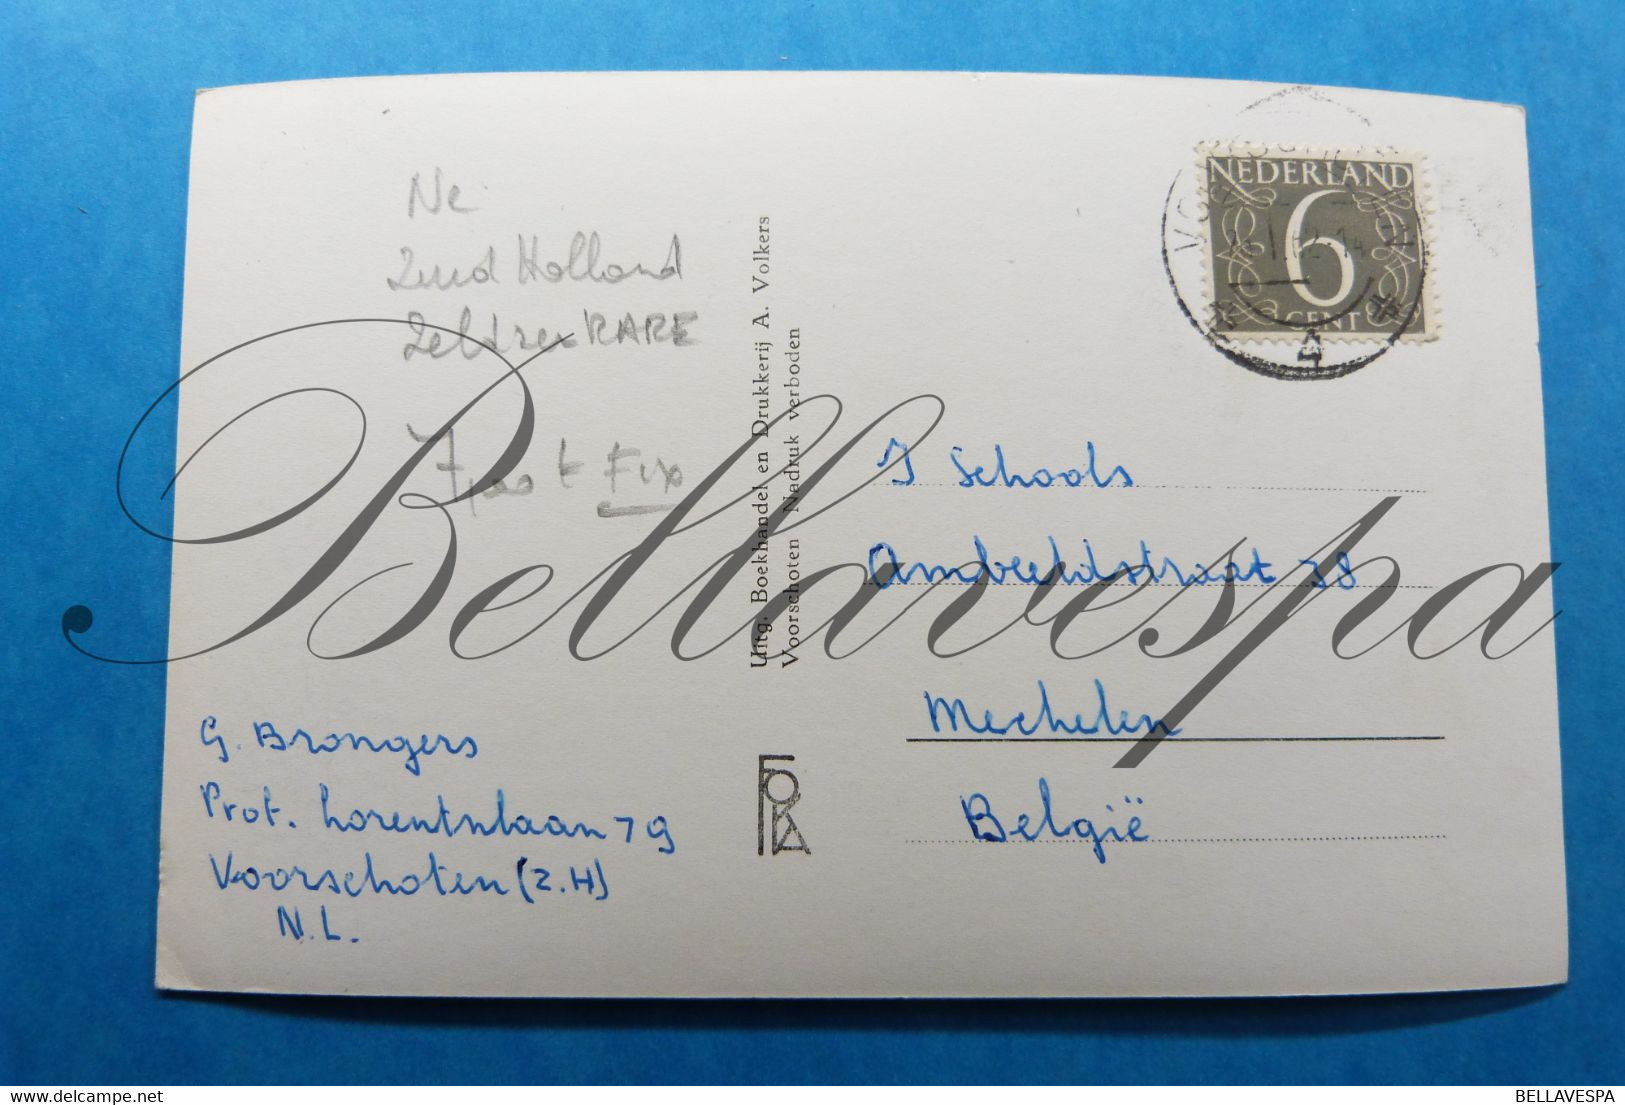 Ne
Zuid Holland
Zeldzee RARE
7,00 € Fix
Uitg. Boekhandel en Drukkerij A. Volkers
Voorschoten Nadruk verboden
NEDERLAND
6
CENT
4
J Schools
Ambeeldstraat 38
Mechelen
België
G. Brongers
Prof. Lorentzlaan 79
Voorschoten (Z.H)
N.L.
FOKA
Bellavespa
BELLAVESPA